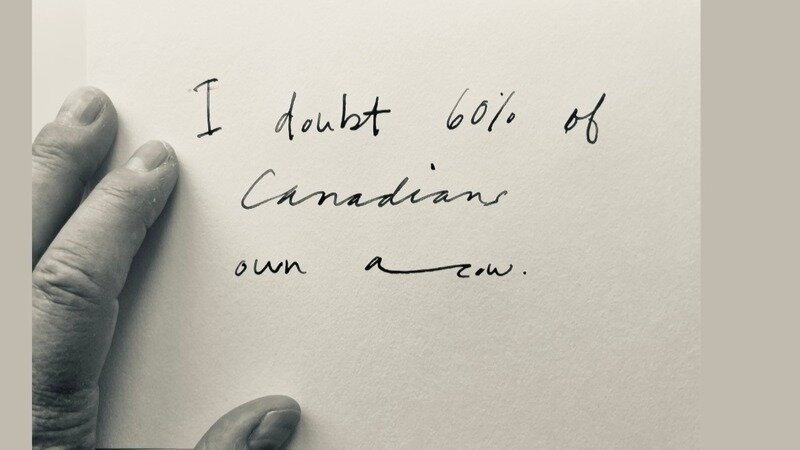 I doubt 60% of
Canadians
own a cow.